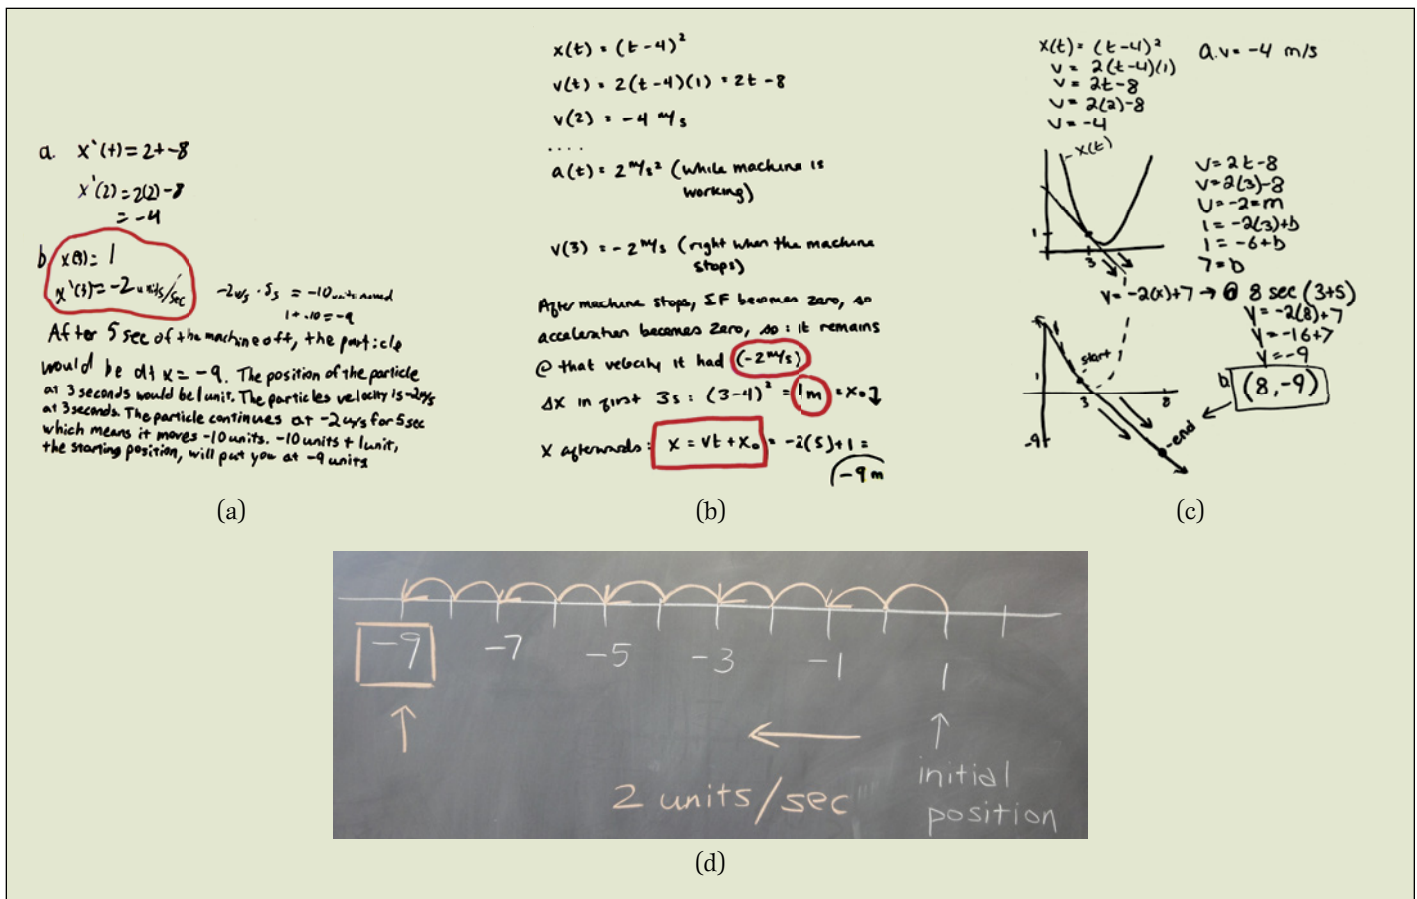 a. x'(t)=2t-8
x'(2)=2(2)-8
= -4
b x(3)= 1
x'(3)=-2 units/sec
-2u/s · 5s = -10 units moved
1+-10=-9
After 5 sec of the machine off, the particle
would be at x = -9. The position of the particle
at 3 seconds would be 1 unit. The particles velocity is -2u/s
at 3 seconds. The particle continues at -2 u/s for 5 sec
which means it moves -10 units. -10 units + 1 unit,
the starting position, will put you at -9 units
(a)
x(t) = (t-4)²
v(t) = 2(t-4)(1) = 2t-8
v(2) = -4 m/s
....
a(t) = 2 m/s² (while machine is
working)
v(3) = -2 m/s (right when the machine
stops)
After machine stops, ΣF becomes zero, so
acceleration becomes zero, so: it remains
@ that velocity it had (-2 m/s)
Δx in first 3s: (3-4)² = 1m = x₀
x afterwards: x = vt + x₀ = -2(5)+1 =
-9 m
(b)
x(t) = (t-4)²
a. v = -4 m/s
v = 2(t-4)(1)
v = 2t-8
v = 2(2)-8
v = -4
x(t)
1
3
v = 2t-8
v = 2(3)-8
v = -2 = m
1 = -2(3)+b
1 = -6+b
7 = b
y = -2(x)+7 → @ 8 sec (3+5)
y = -2(8)+7
y = -16+7
y = -9
b. (8,-9)
start
1
3
8
-9
end
(c)
-9 -7 -5 -3 -1 1
2 units/sec
initial
position
(d)